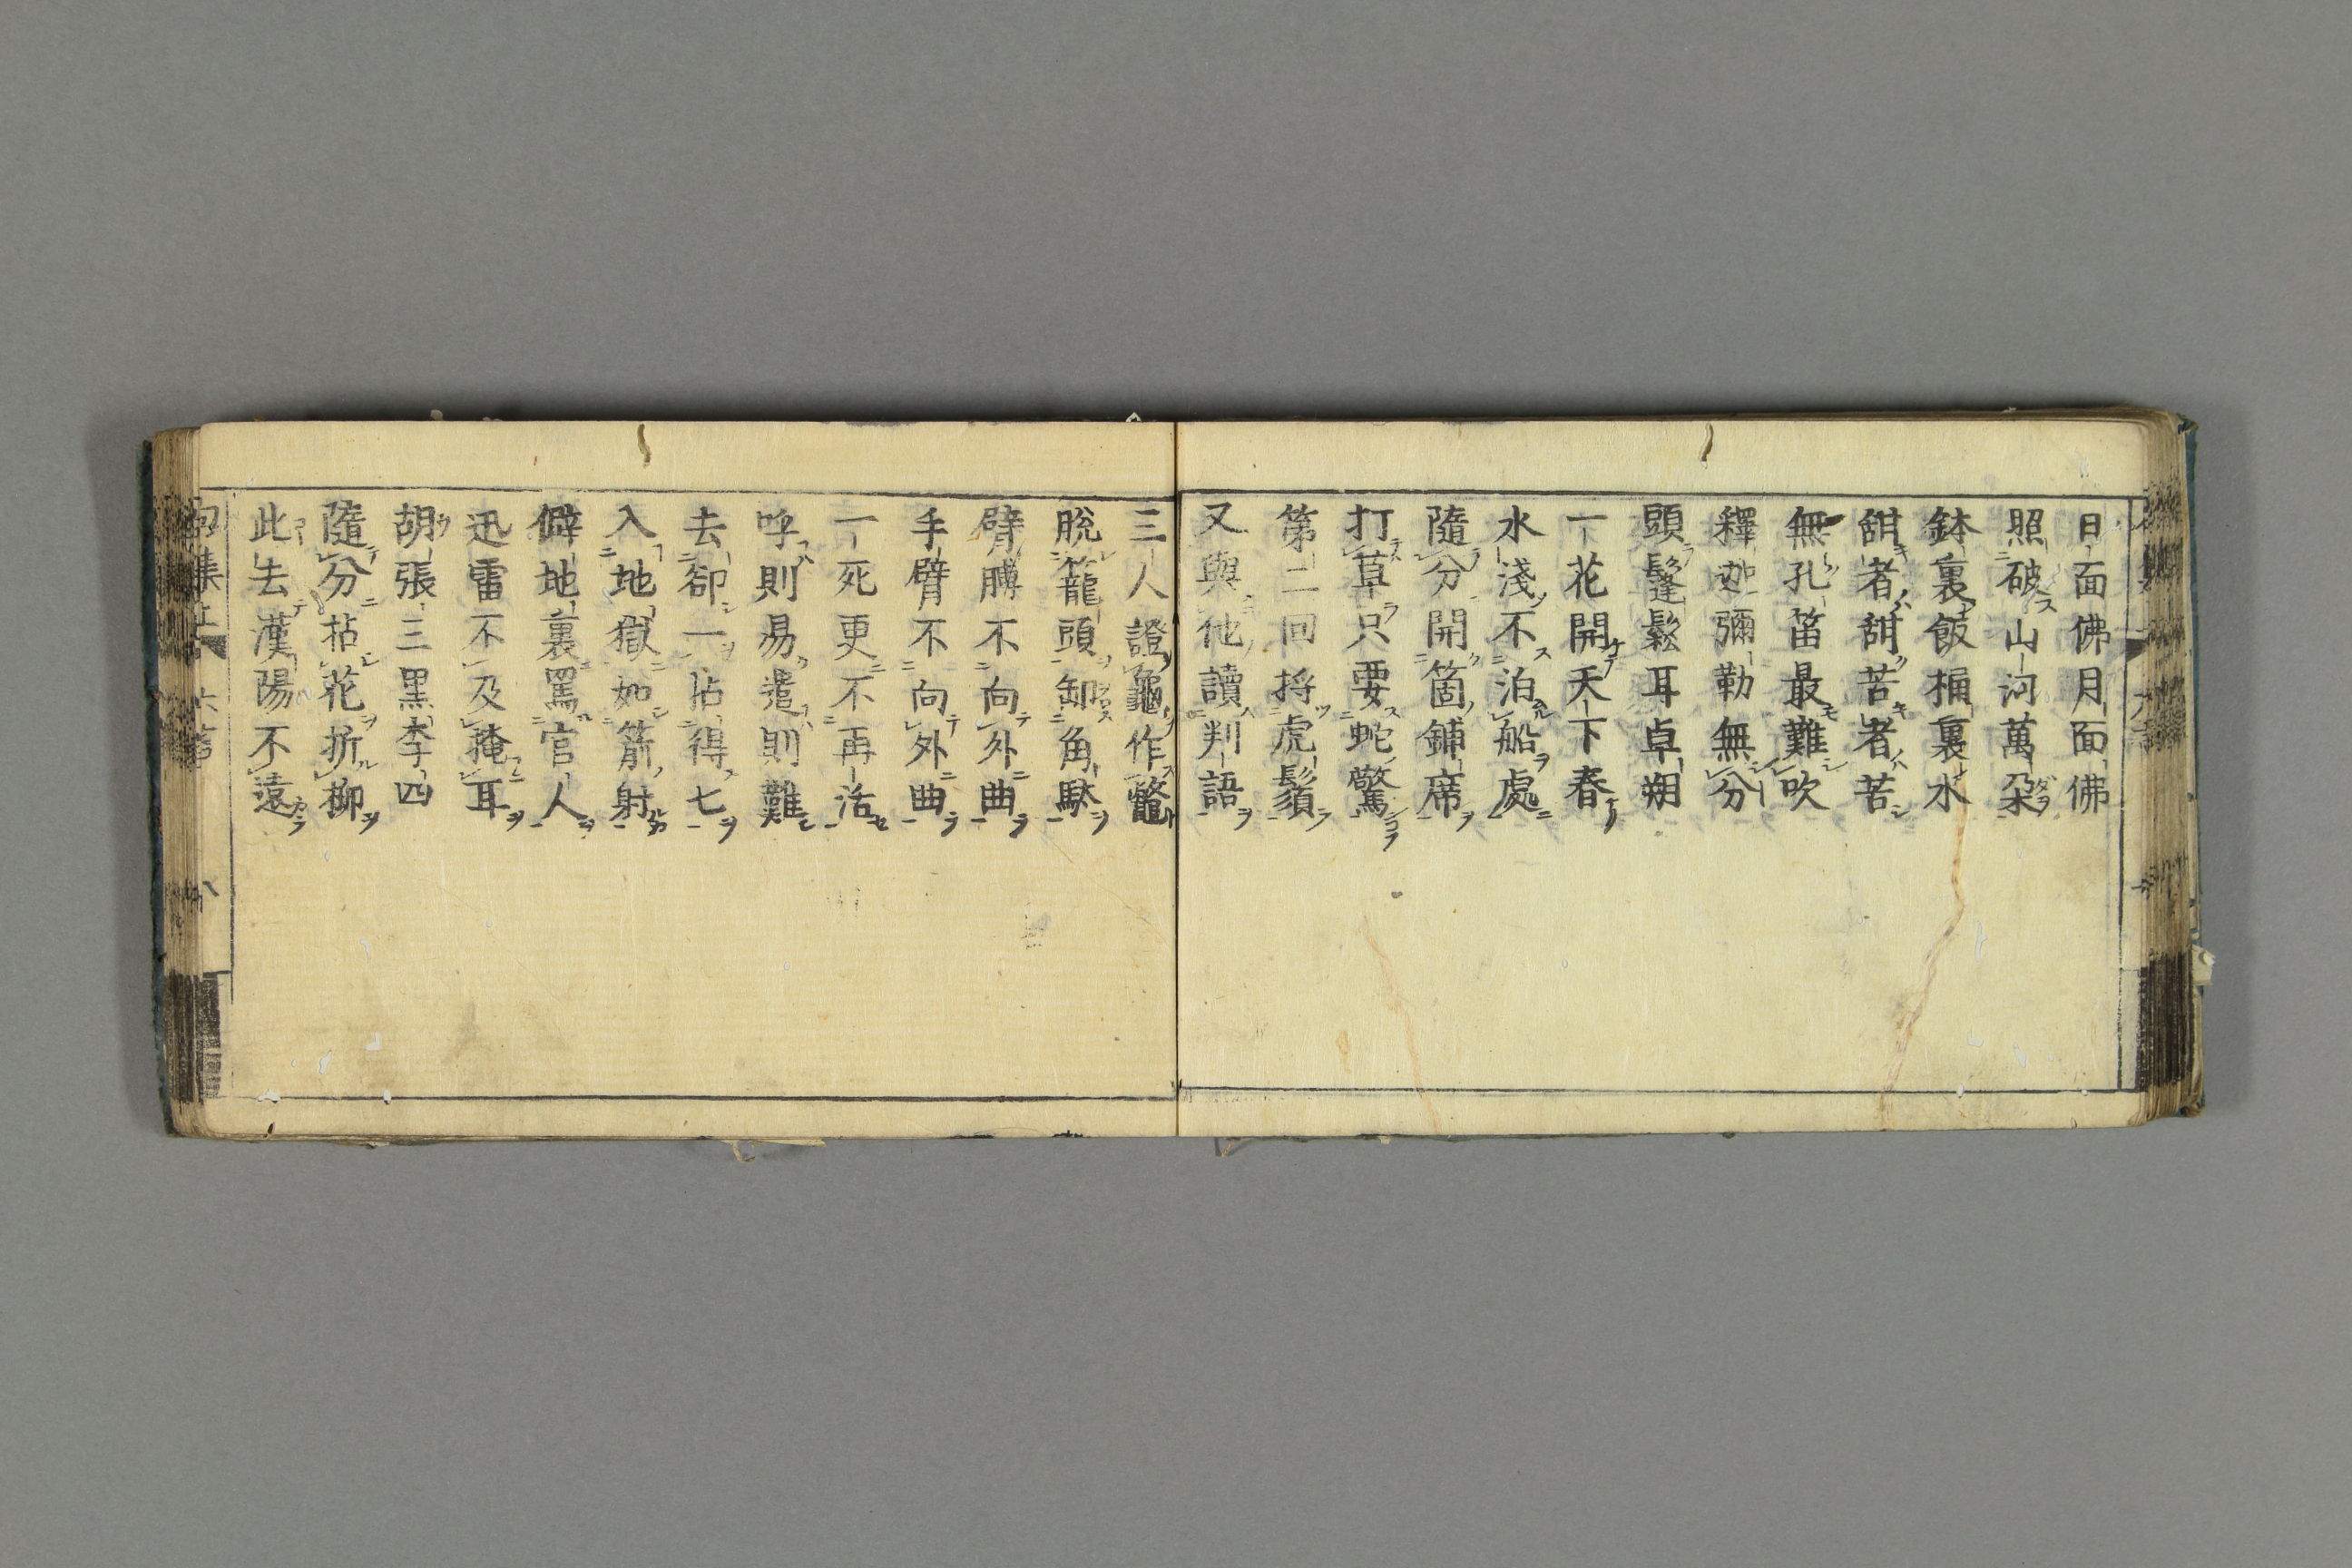 日面佛月面佛
照破山河萬朶
鉢裏飯桶裏水
甜者甜苦者苦
無孔笛最難吹
釋迦彌勒無分
頭鬔鬆耳卓朔
一花開天下春
水淺不泊船處
隨分開箇鋪席
打草只要蛇驚
第二回捋虎鬚
又與他讀判語
三人證龜作鼈
脫籠頭卸角馱
臂膊不向外曲
手臂不向外曲
一死更不再活
呼則易遣則難
去卻一拈得七
入地獄如箭射
僻地裏罵官人
迅雷不及掩耳
胡張三黑李四
隨分拈花折柳
此去漢陽不遠